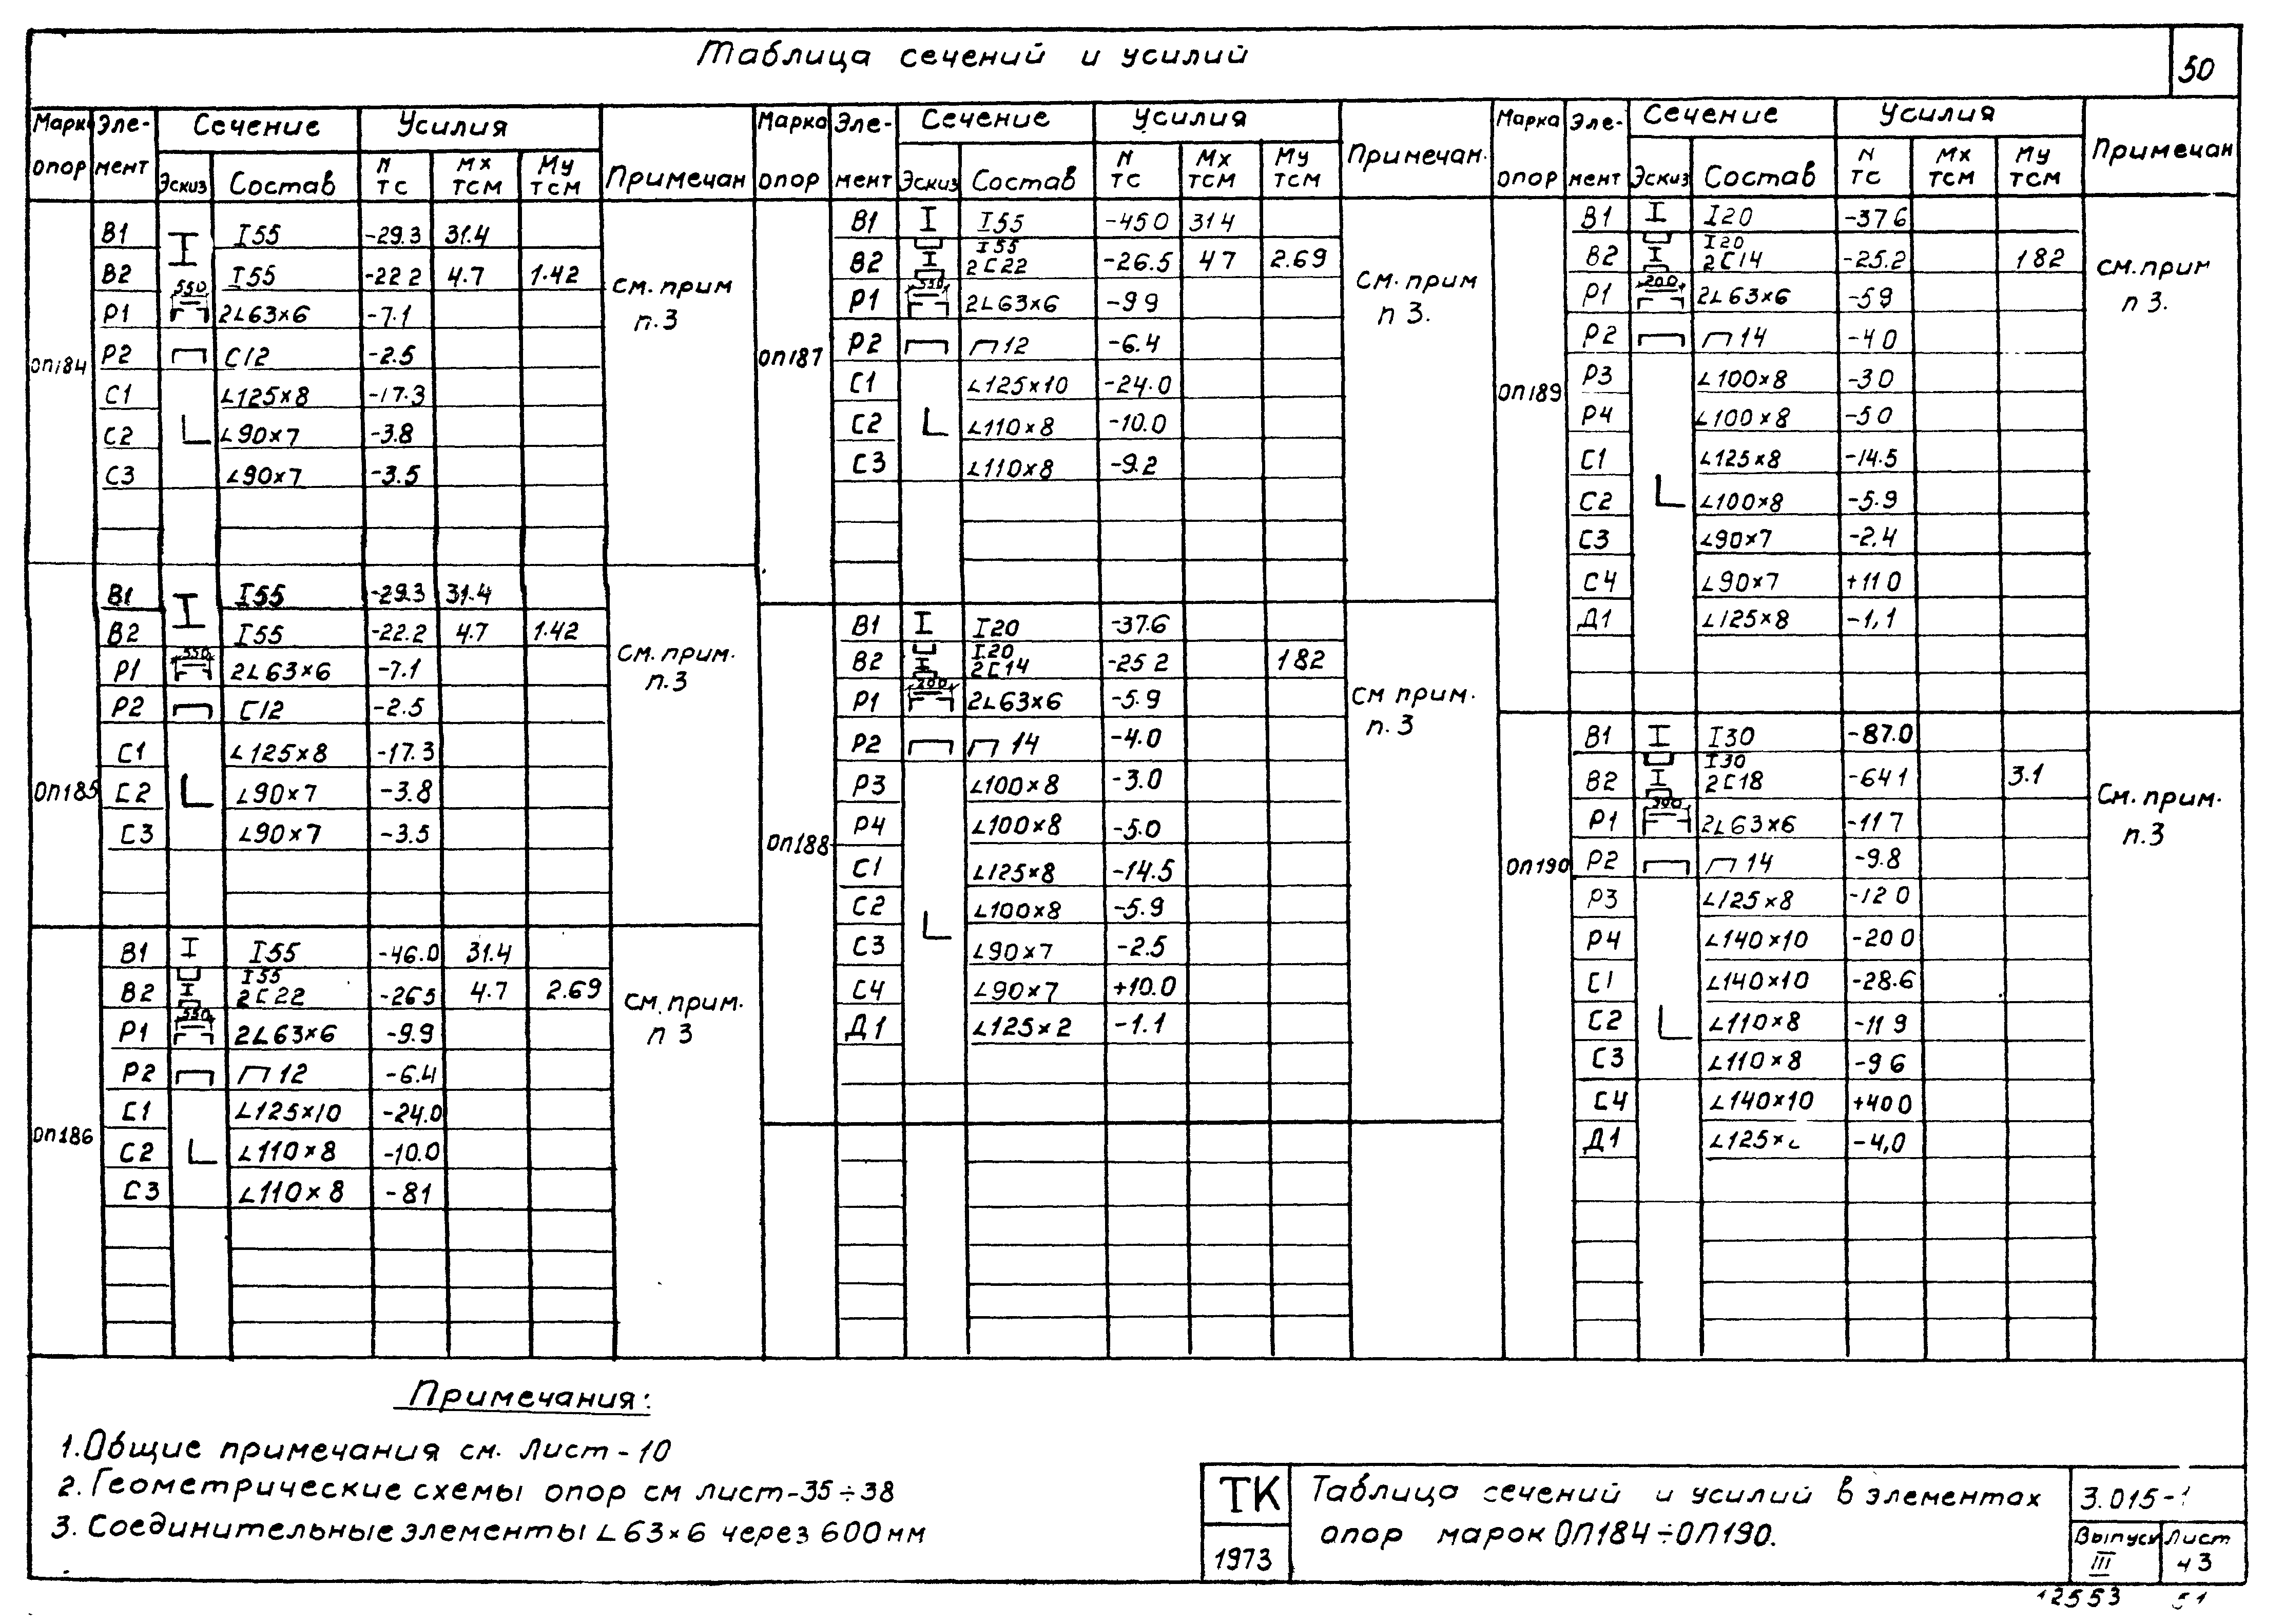 Таблица сечений и усилий
50
Марка опор Эле-мент Сечение Усилия Примечан
Эскиз Состав N тс Mx тсм My тсм
ОП184
В1 I55 -29.3 31.4
В2 I55 -22 2 4.7 1.42
550
Р1 2L63×6 -7.1
Р2 C12 -2.5
С1 L125×8 -17.3
С2 L90×7 -3.8
С3 L90×7 -3.5
см. прим
п.3
ОП185
В1 I55 -29.3 31.4
В2 I55 -22.2 4.7 1.42
550
Р1 2L63×6 -7.1
Р2 C12 -2.5
С1 L125×8 -17.3
С2 L90×7 -3.8
С3 L90×7 -3.5
см. прим.
п.3
ОП186
В1 I55 -46.0 31.4
В2 I55 2C22 -265 4.7 2.69
550
Р1 2L63×6 -9.9
Р2 П12 -6.4
С1 L125×10 -24.0
С2 L110×8 -10.0
С3 L110×8 -81
см. прим.
п 3
Марка опор Эле-мент Сечение Усилия Примечан.
Эскиз Состав N тс Mx тсм My тсм
ОП187
В1 I55 -45 0 31 4
В2 I55 2C22 -26.5 4 7 2.69
550
Р1 2L63×6 -9 9
Р2 П12 -6.4
С1 L125×10 -24.0
С2 L110×8 -10.0
С3 L110×8 -9.2
см. прим
п 3.
ОП188
В1 I20 -37.6
В2 I20 2C14 -25 2 1 82
200
Р1 2L63×6 -5.9
Р2 П14 -4.0
Р3 L100×8 -3.0
Р4 L100×8 -5.0
С1 L125×8 -14.5
С2 L100×8 -5.9
С3 L90×7 -2.5
С4 L90×7 +10.0
Д1 L125×2 -1.1
см прим.
п. 3
Марка опор Эле-мент Сечение Усилия Примечан
Эскиз Состав N тс Mx тсм My тсм
ОП189
В1 I20 -37 6
В2 I20 2C14 -25.2 1 82
200
Р1 2L63×6 -5 9
Р2 П14 -4 0
Р3 L100×8 -3 0
Р4 L100×8 -5 0
С1 L125×8 -14.5
С2 L100×8 -5.9
С3 L90×7 -2.4
С4 L90×7 +11 0
Д1 L125×8 -1,1
см. прим
п 3.
ОП190
В1 I30 -87.0
В2 I30 2C18 -64 1 3.1
300
Р1 2L63×6 -11 7
Р2 П14 -9.8
Р3 L125×8 -12 0
Р4 L140×10 -20 0
С1 L140×10 -28.6
С2 L110×8 -11 9
С3 L110×8 -9 6
С4 L140×10 +40 0
Д1 -4,0
См. прим.
п.3
Примечания:
1. Общие примечания см. лист-10
2. Геометрические схемы опор см лист-35÷38
3. Соединительные элементы L63×6 через 600мм
ТК
1973
Таблица сечений и усилий в элементах
опор марок ОП184÷ОП190.
3.015-1
Выпуск III
Лист 43
12553 51